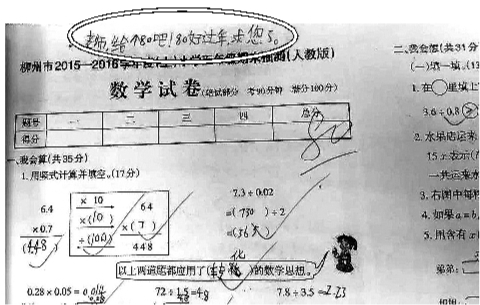 老师,给个80吧!80好过年,求您了。
柳州市2015—2016学年度(人教版)
数学试卷(考90分钟 满分100分)
题号 一 二 三 四 总分
得分 80
一、我会算(共35分)
1.用竖式计算并填空。(17分)
6.4 ×0.7 (4.48)
×10 ×(10) ÷(100)
64 ×(7) 448
7.3÷0.02
=(730)÷2
=(365)
以上两道题都应用了(转化)的数学思想。
0.28×0.05=
72÷1.5=48
7.8÷3.5=2.23
二、我会想(共31分)
(一)填一填。(13
1.在○里填上
3.6÷0.8 >
2.水果店运来
15 x 表示(
一共运来水
3.右图中每
4.如果 a=b,
5.用含有 x